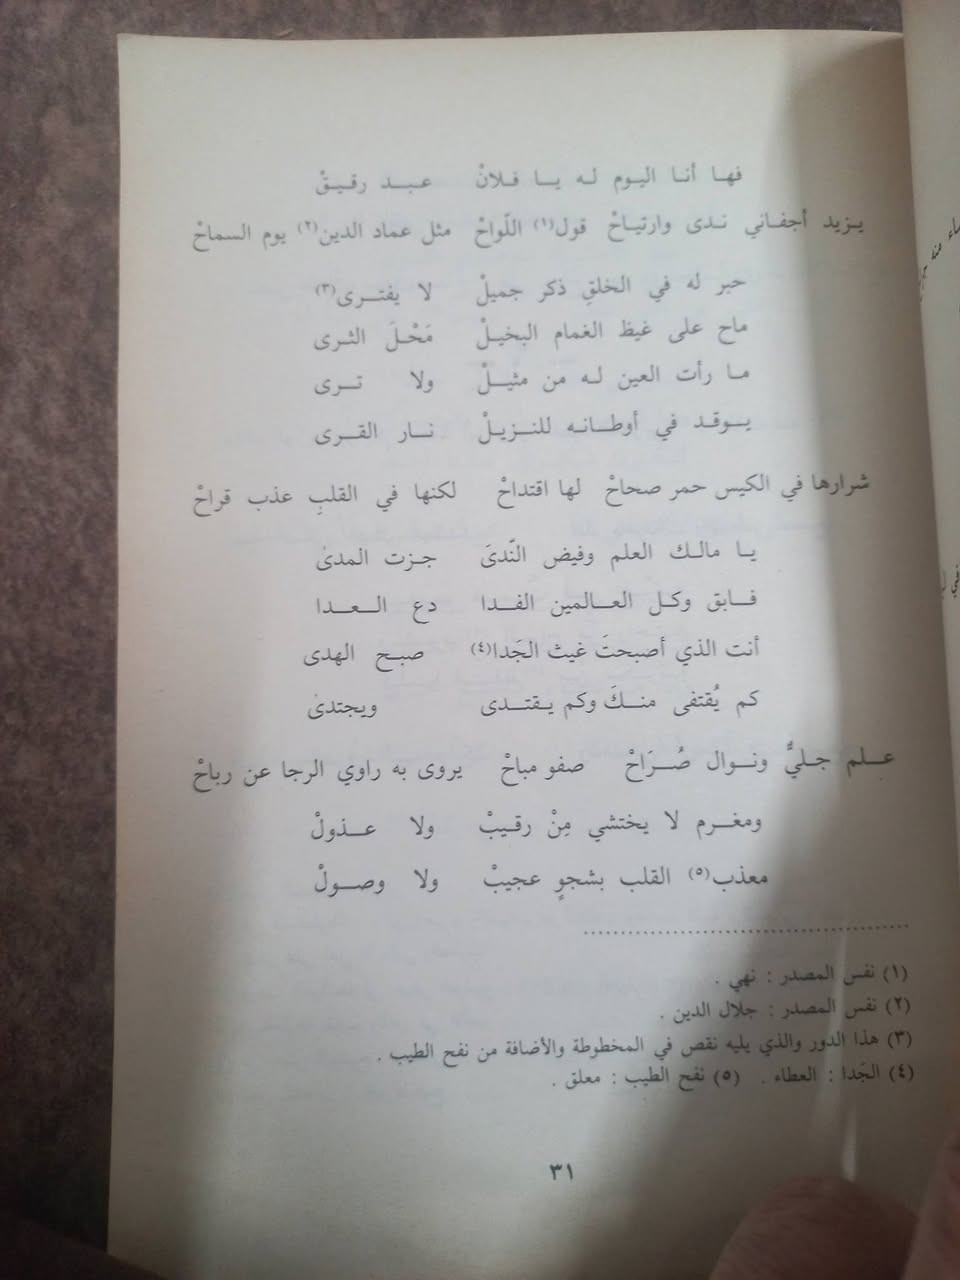 فها أنا اليوم له يا فلانْ عبد رقيقْ
يزيد أجفاني ندى وارتياحْ قول(١) اللّواحْ مثل عماد الدين(٢) يوم السماحْ
حبر له في الخلقِ ذكر جميلْ لا يفترى(٣)
ماح على غيظ الغمام البخيلْ مَحْلَ الثرى
ما رأت العين له من مثيلْ ولا ترى
يوقد في أوطانه للنزيلْ نار القرى
شرارها في الكيس حمر صحاحْ لها اقتداحْ لكنها في القلبِ عذب قراحْ
يا مالك العلم وفيض النّدىَ جزت المدىٰ
فابق وكل العالمين الفدا دع العدا
أنت الذي أصبحتَ غيث الجَدا(٤) صبح الهدى
كم يُقتفى منكَ وكم يقتدى ويجتدىٰ
علم جليٌّ ونوال صُرَاحْ صفو مباحْ يروى به راوي الرجا عن رباحْ
ومغرم لا يختشي مِنْ رقيبْ ولا عذولْ
معذب(٥) القلب بشجوٍ عجيبْ ولا وصولْ
(١) نفس المصدر : نهي .
(٢) نفس المصدر : جلال الدين .
(٣) هذا الدور والذي يليه نقص في المخطوطة والأضافة من نفح الطيب .
(٤) الجَدا : العطاء . (٥) نفح الطيب : معلق .
٣١